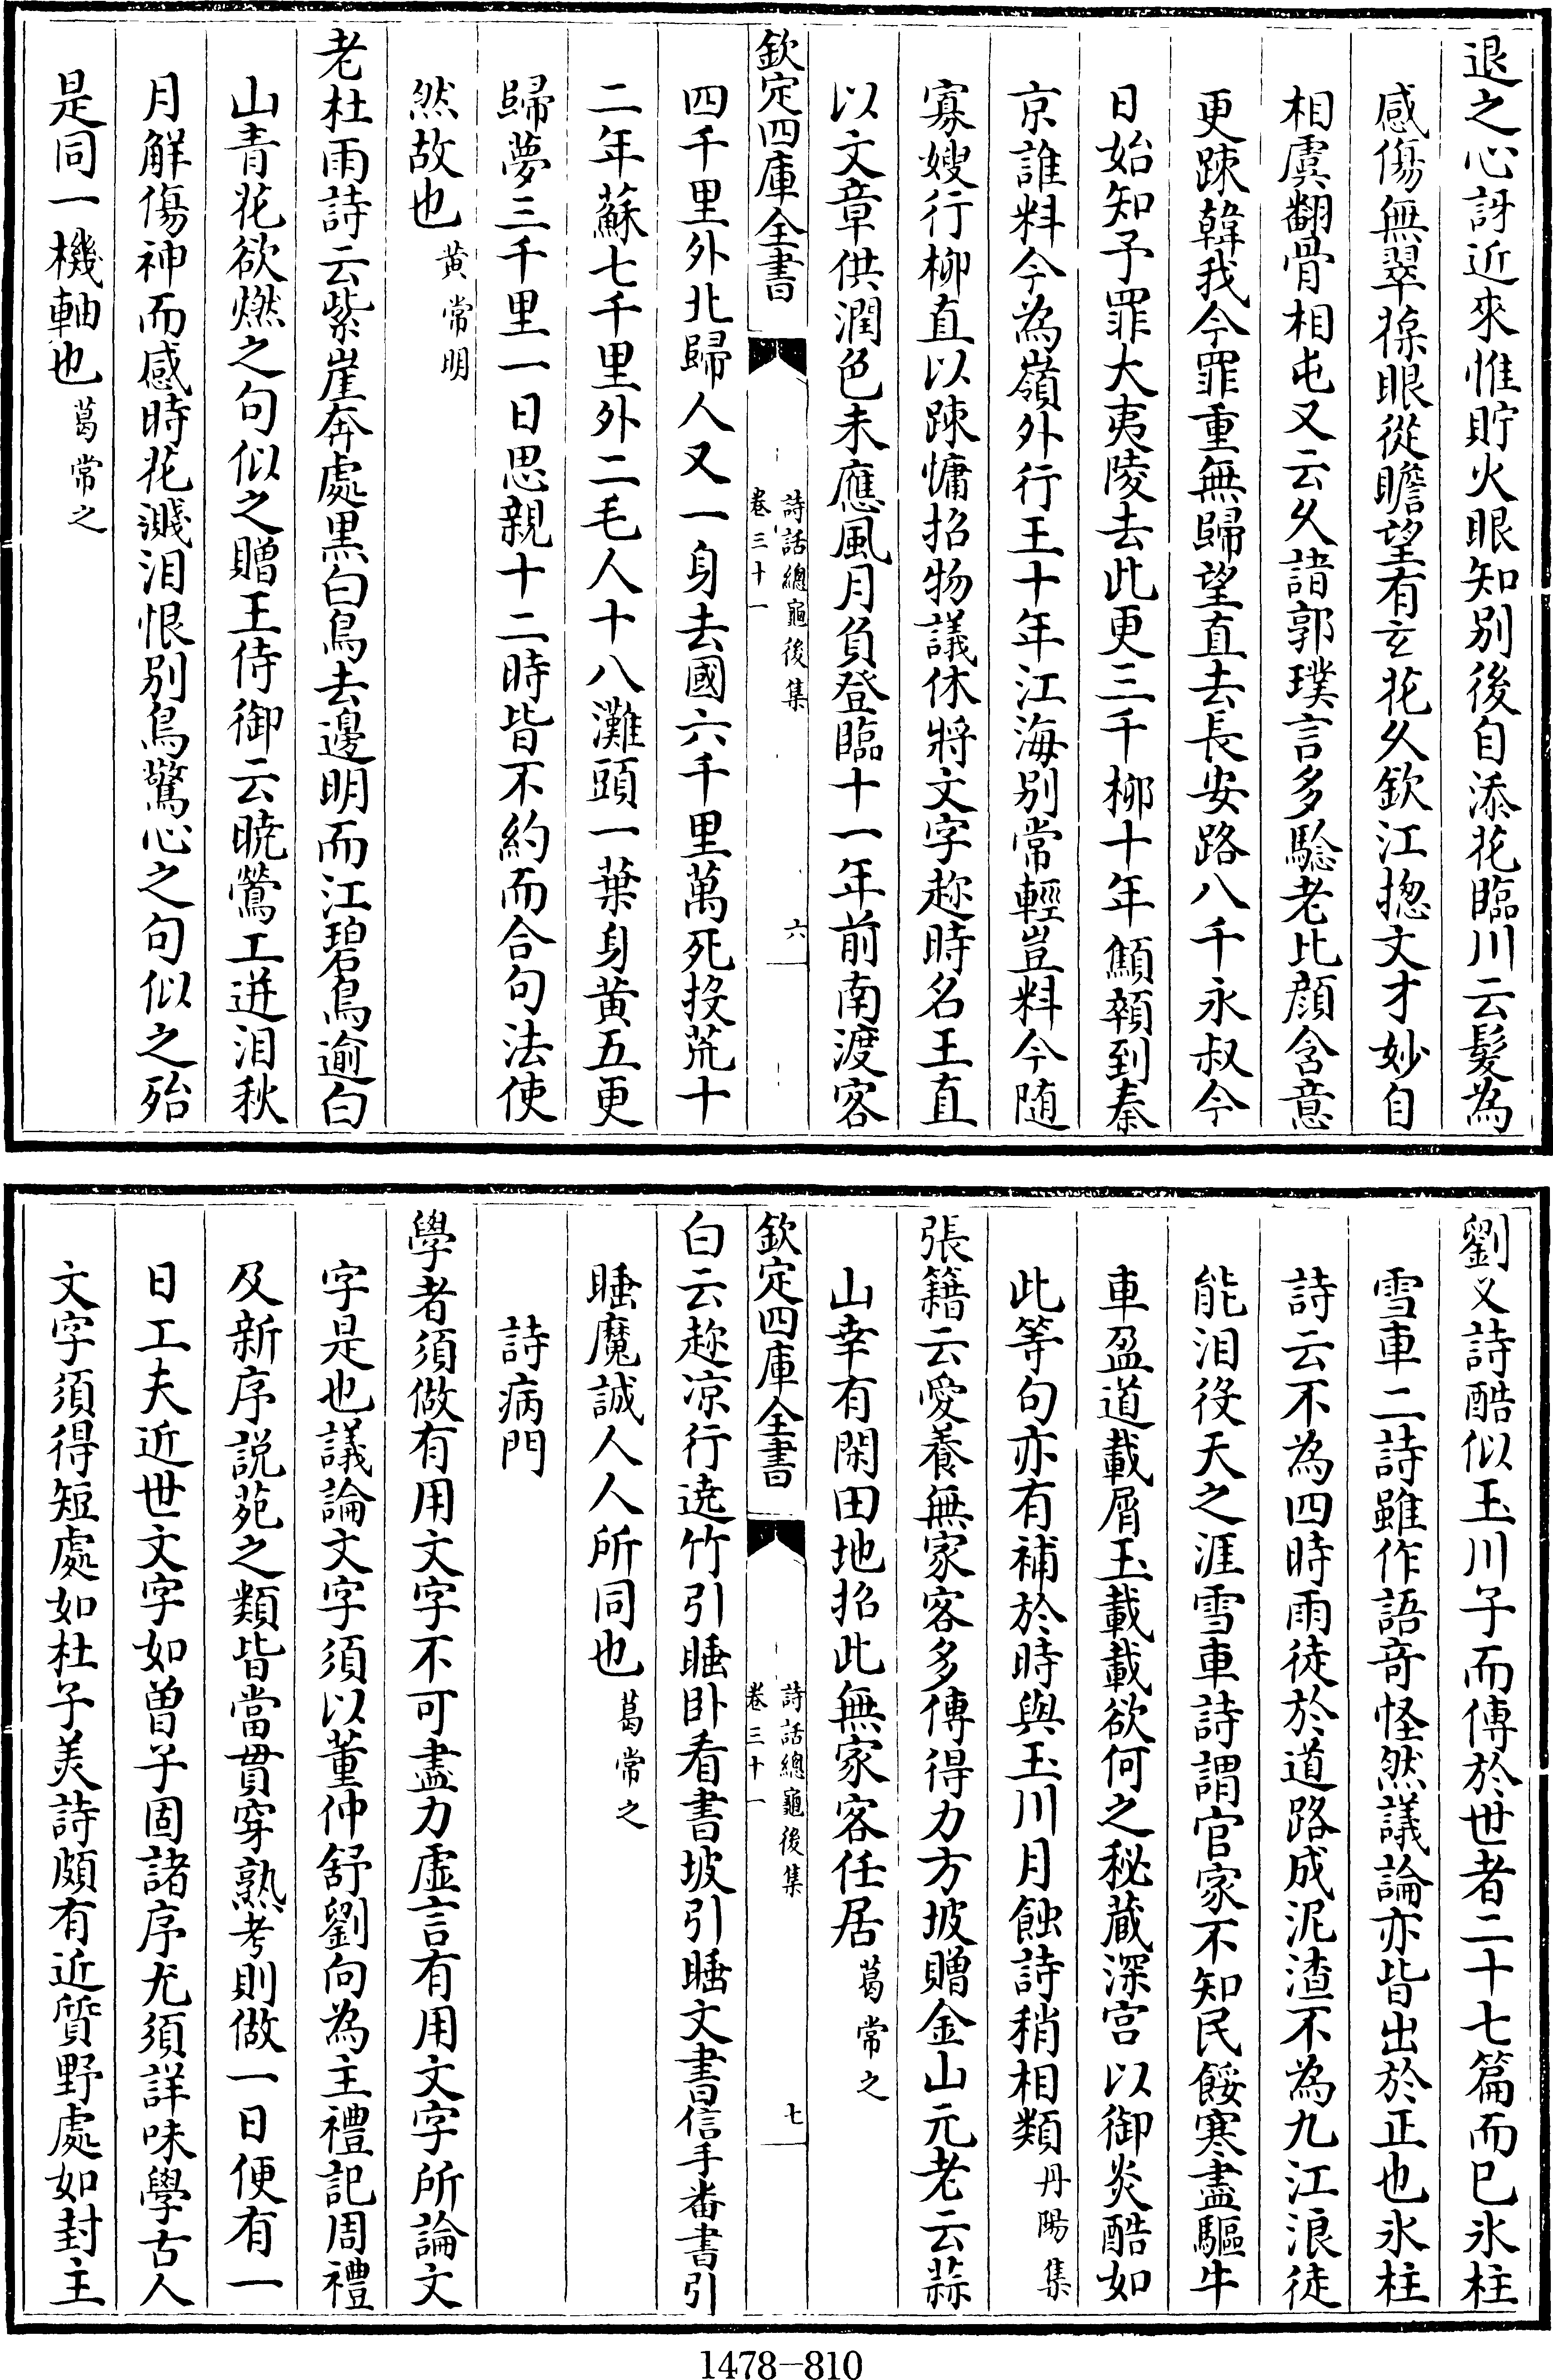 退之心訝近來惟貯火眼知别後自添花臨川云髮為
感傷無翠葆眼從瞻望有玄花久欽江揔文才妙自
相虞翻骨相屯又云久諳郭璞言多驗老比顔含意
更踈韓我今罪重無歸望直去長安路八千永叔今
日始知予罪大夷陵去此更三千栁十年顦顇到秦
京誰料今為嶺外行王十年江海别常輕豈料今隨
寡嫂行栁直以踈慵招物議休將文字趂時名王直
以文章供潤色未應風月負登臨十一年前南渡客
欽定四庫全書
詩話總龜後集
卷三十一
六
四千里外北歸人又一身去國六千里萬死投荒十
二年蘇七千里外二毛人十八灘頭一葉身黄五更
歸夢三千里一日思親十二時皆不約而合句法使
然故也黄常明
老杜雨詩云紫崖奔處黒白鳥去邊明而江碧鳥逾白
山青花欲燃之句似之贈王侍御云曉鶯工迸淚秋
月解傷神而感時花濺淚恨别鳥驚心之句似之殆
是同一機軸也葛常之
劉乂詩酷似玉川子而傳於世者二十七篇而已氷柱
雪車二詩雖作語竒怪然議論亦皆出於正也氷柱
詩云不為四時雨徒於道路成泥渣不為九江浪徒
能汨沒天之涯雪車詩謂官家不知民餒寒盡驅牛
車盈道載屑玉載載欲何之秘藏深宫以御炎酷如
此等句亦有補於時與玉川月蝕詩稍相類丹陽集
張籍云愛養無家客多傳得力方坡贈金山元老云蒜
山幸有閑田地招此無家客任居葛常之
欽定四庫全書
詩話總龜後集
卷三十一
七
白云趂凉行遶竹引睡卧看書坡引睡文書信手番書引
睡魔誠人人所同也葛常之
詩病門
學者須做有用文字不可盡力虛言有用文字所論文
字是也議論文字須以董仲舒劉向為主禮記周禮
及新序説苑之類皆當貫穿熟考則做一日便有一
日工夫近世文字如曽子固諸序尤須詳味學古人
文字須得短處如杜子美詩頗有近質野處如封主
1478-810